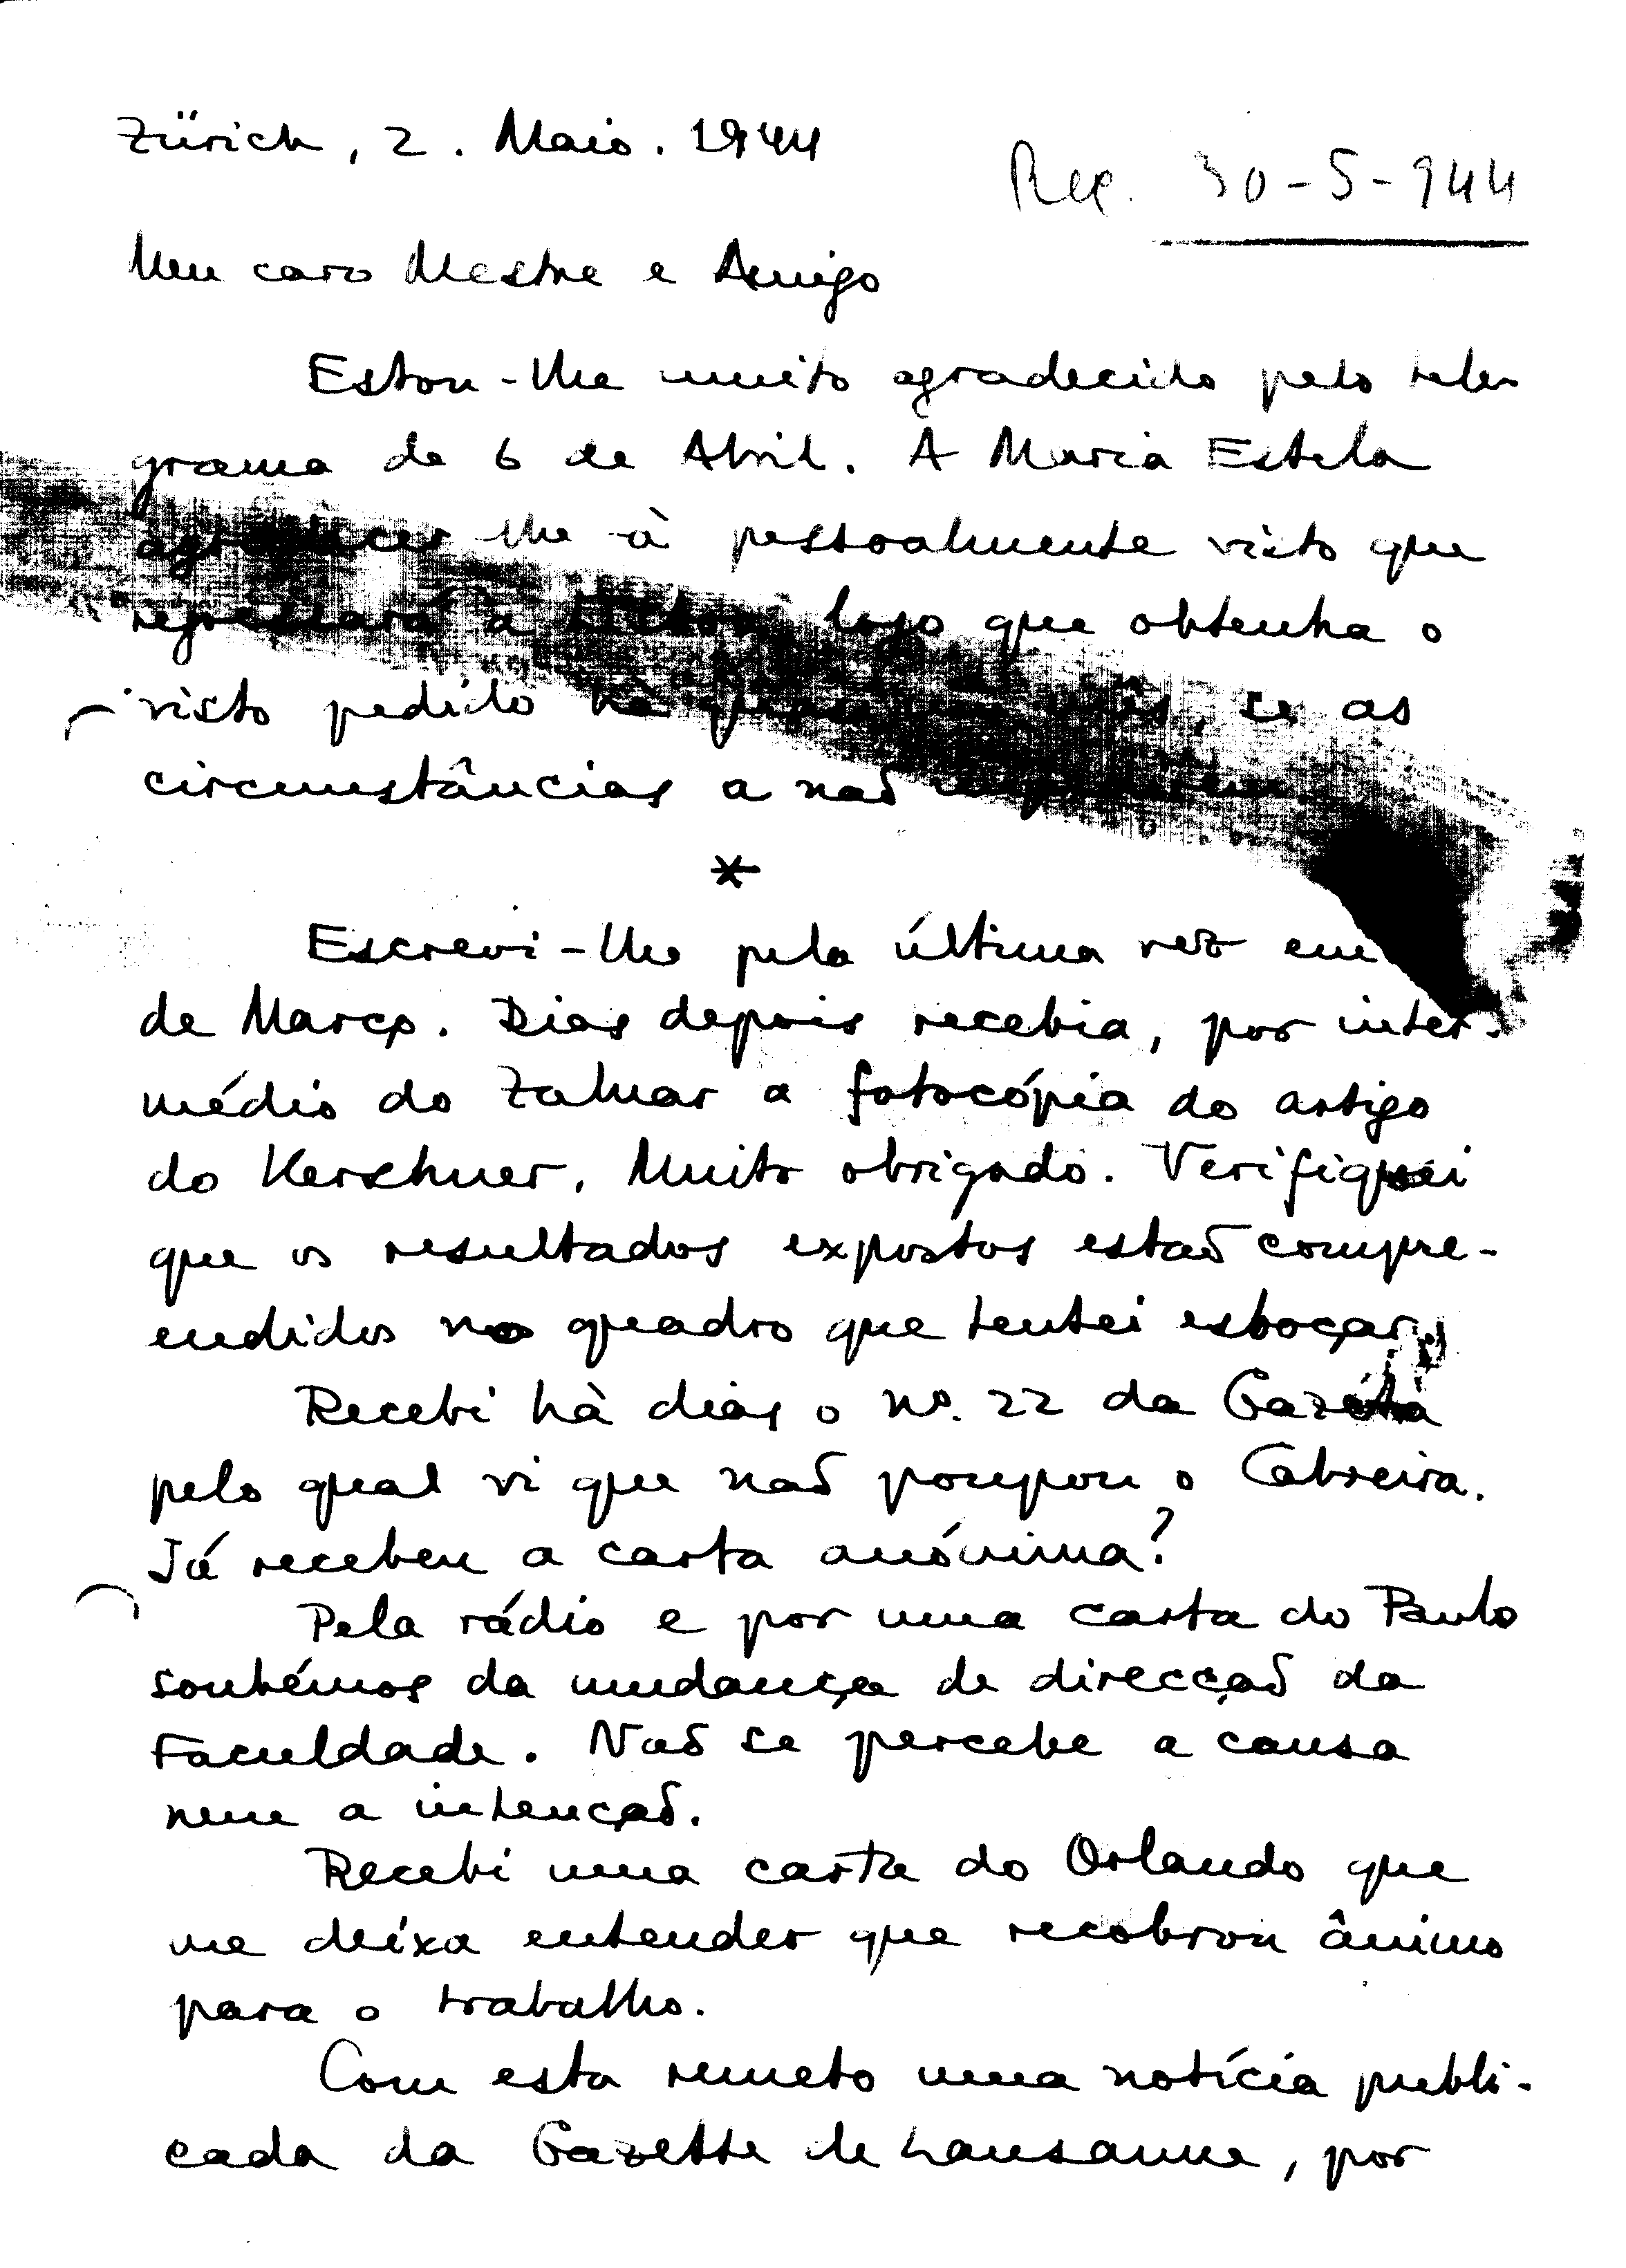 Zürich, 2. Maio. 1944
Rec. 30-5-944
Meu caro Mestre e Amigo
Estou-lhe muito agradecido pelo tele-
grama de 6 de Abril. A Maria Estela
agradecer-lhe-à pessoalmente visto que
regressará a Lisboa, logo que obtenha o
visto pedido hà quasi um mês, se as
circumstâncias a naõ impedirem.
*
Escrevi-lhe pela última vez em
de Março. Dias depois recebia, por inter-
médio do Zaluar a fotocópia do artigo
do Kerschner. Muito obrigado. Verifiquei
que os resultados expostos estaõ compre-
endidos no quadro que tentei esboçar.
Recebi hà dias o nº. 22 da Gazeta
pelo qual vi que naõ poupou o Cabreira.
Já recebeu a carta anónima?
Pela rádio e por uma carta do Paulo
soubémos da mudança de direcçaõ da
Faculdade. Naõ se percebe a causa
nem a intençaõ.
Recebi uma carta do Orlando que
me deixa entender que recobrou ânimo
para o trabalho.
Com esta remeto uma notícia publi-
cada da Gazette de Lausanne, por